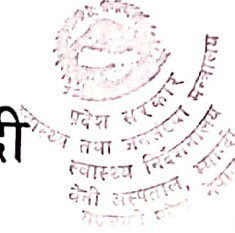 दी
प्रदेश सरकार
स्वास्थ्य तथा जनसंख्या मन्त्रालय
स्वास्थ्य निर्देशनालय
बेनी अस्पताल, म्याग्दी
गण्डकी प्रदेश, नेपाल